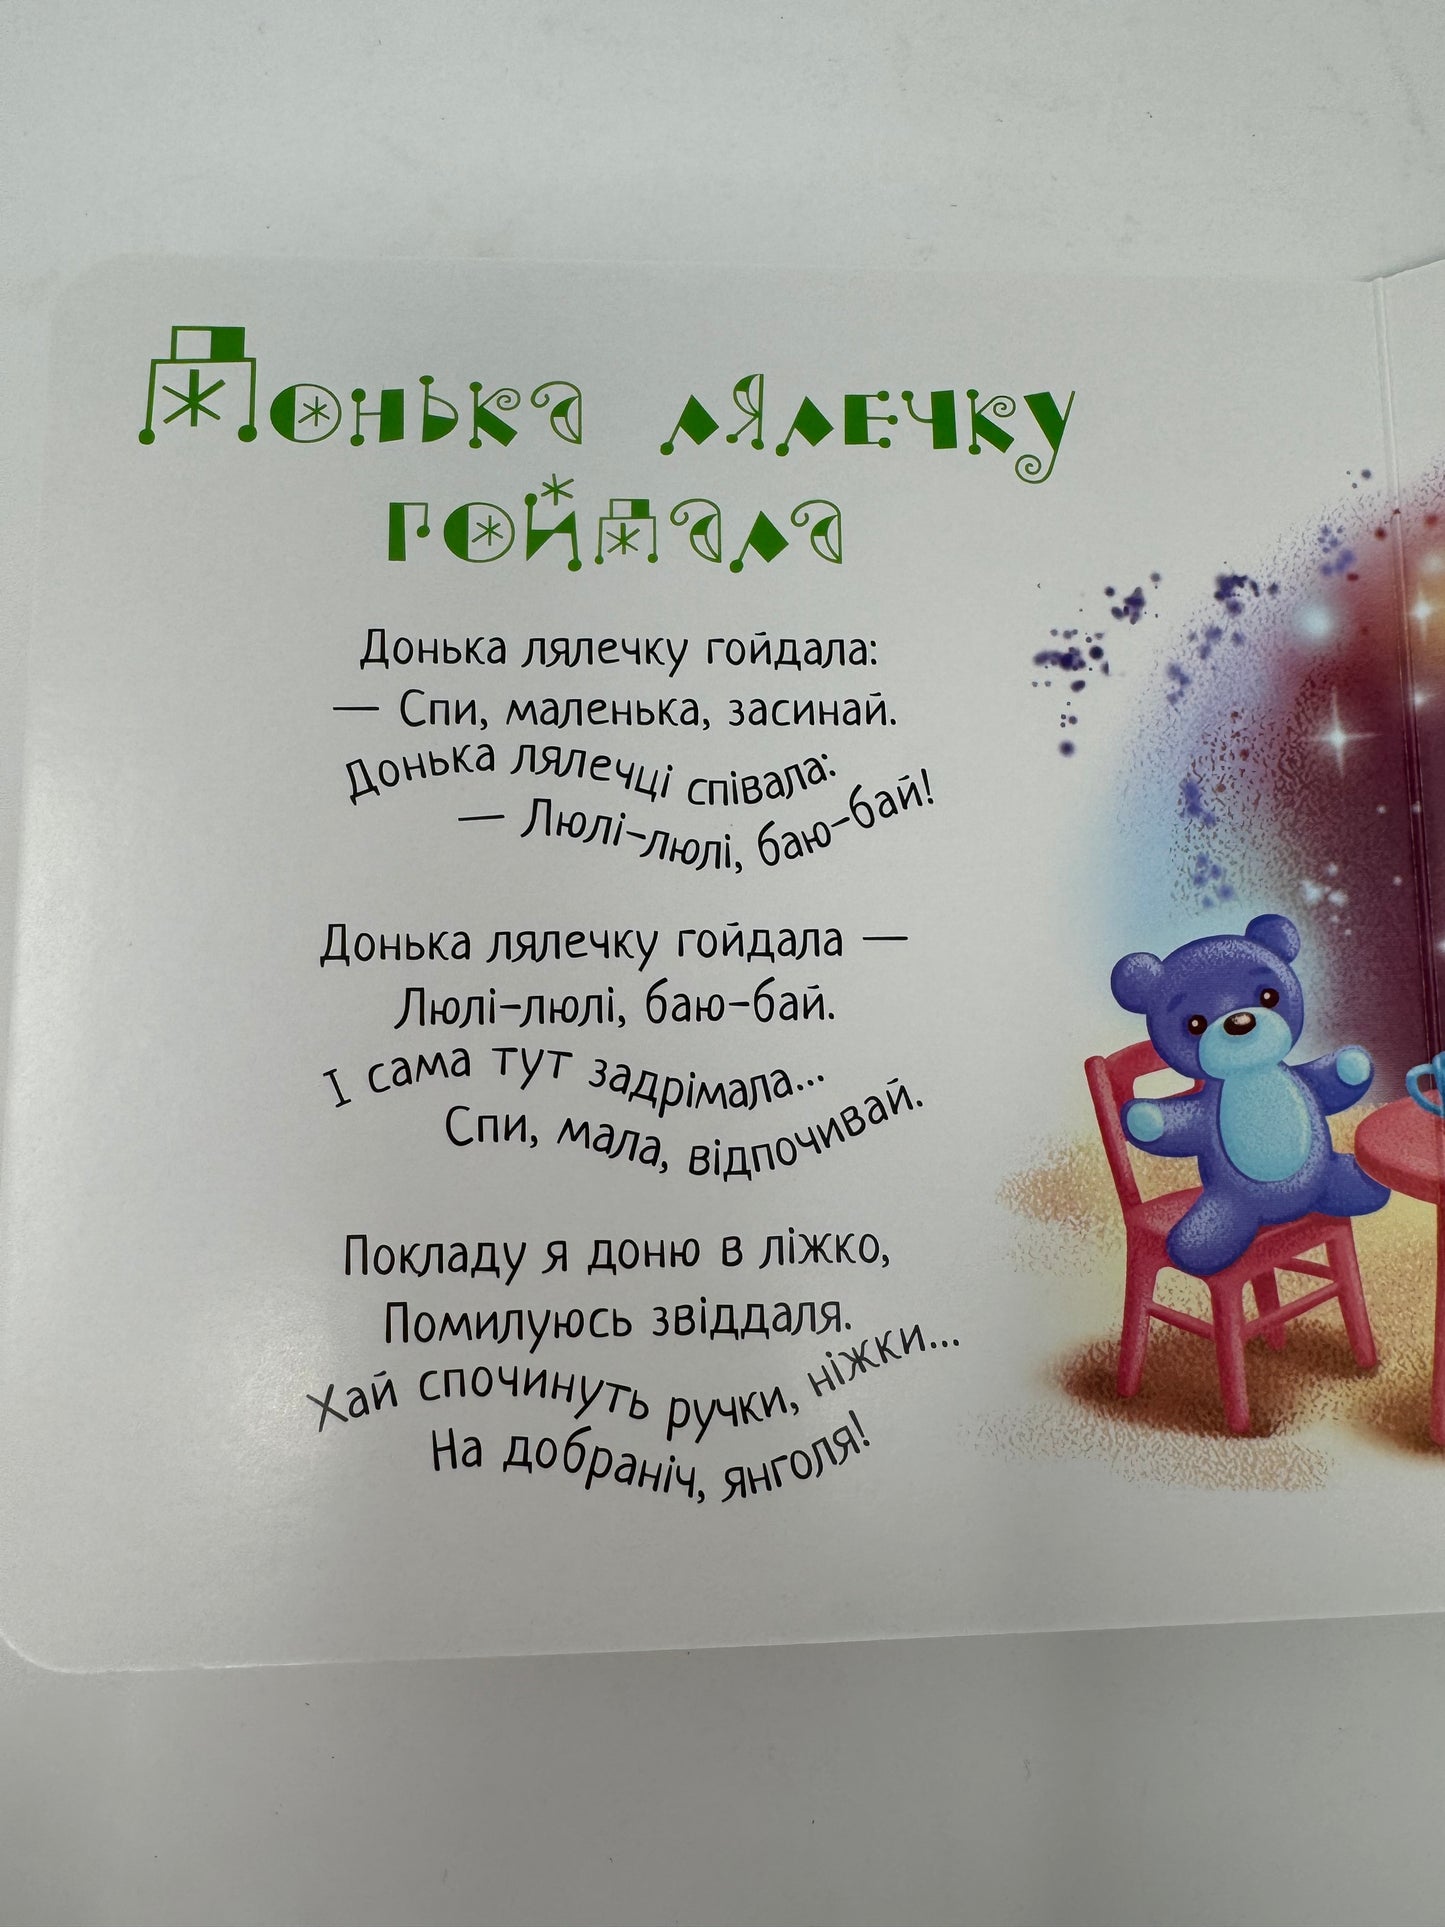 Донька лялечку
гойдала
Донька лялечку гойдала:
— Спи, маленька, засинай.
Донька лялечці співала:
— Люлі-люлі, баю-бай!
Донька лялечку гойдала —
Люлі-люлі, баю-бай.
І сама тут задрімала...
Спи, мала, відпочивай.
Покладу я доню в ліжко,
Помилуюсь звіддаля.
Хай спочинуть ручки, ніжки...
На добраніч, янголя!